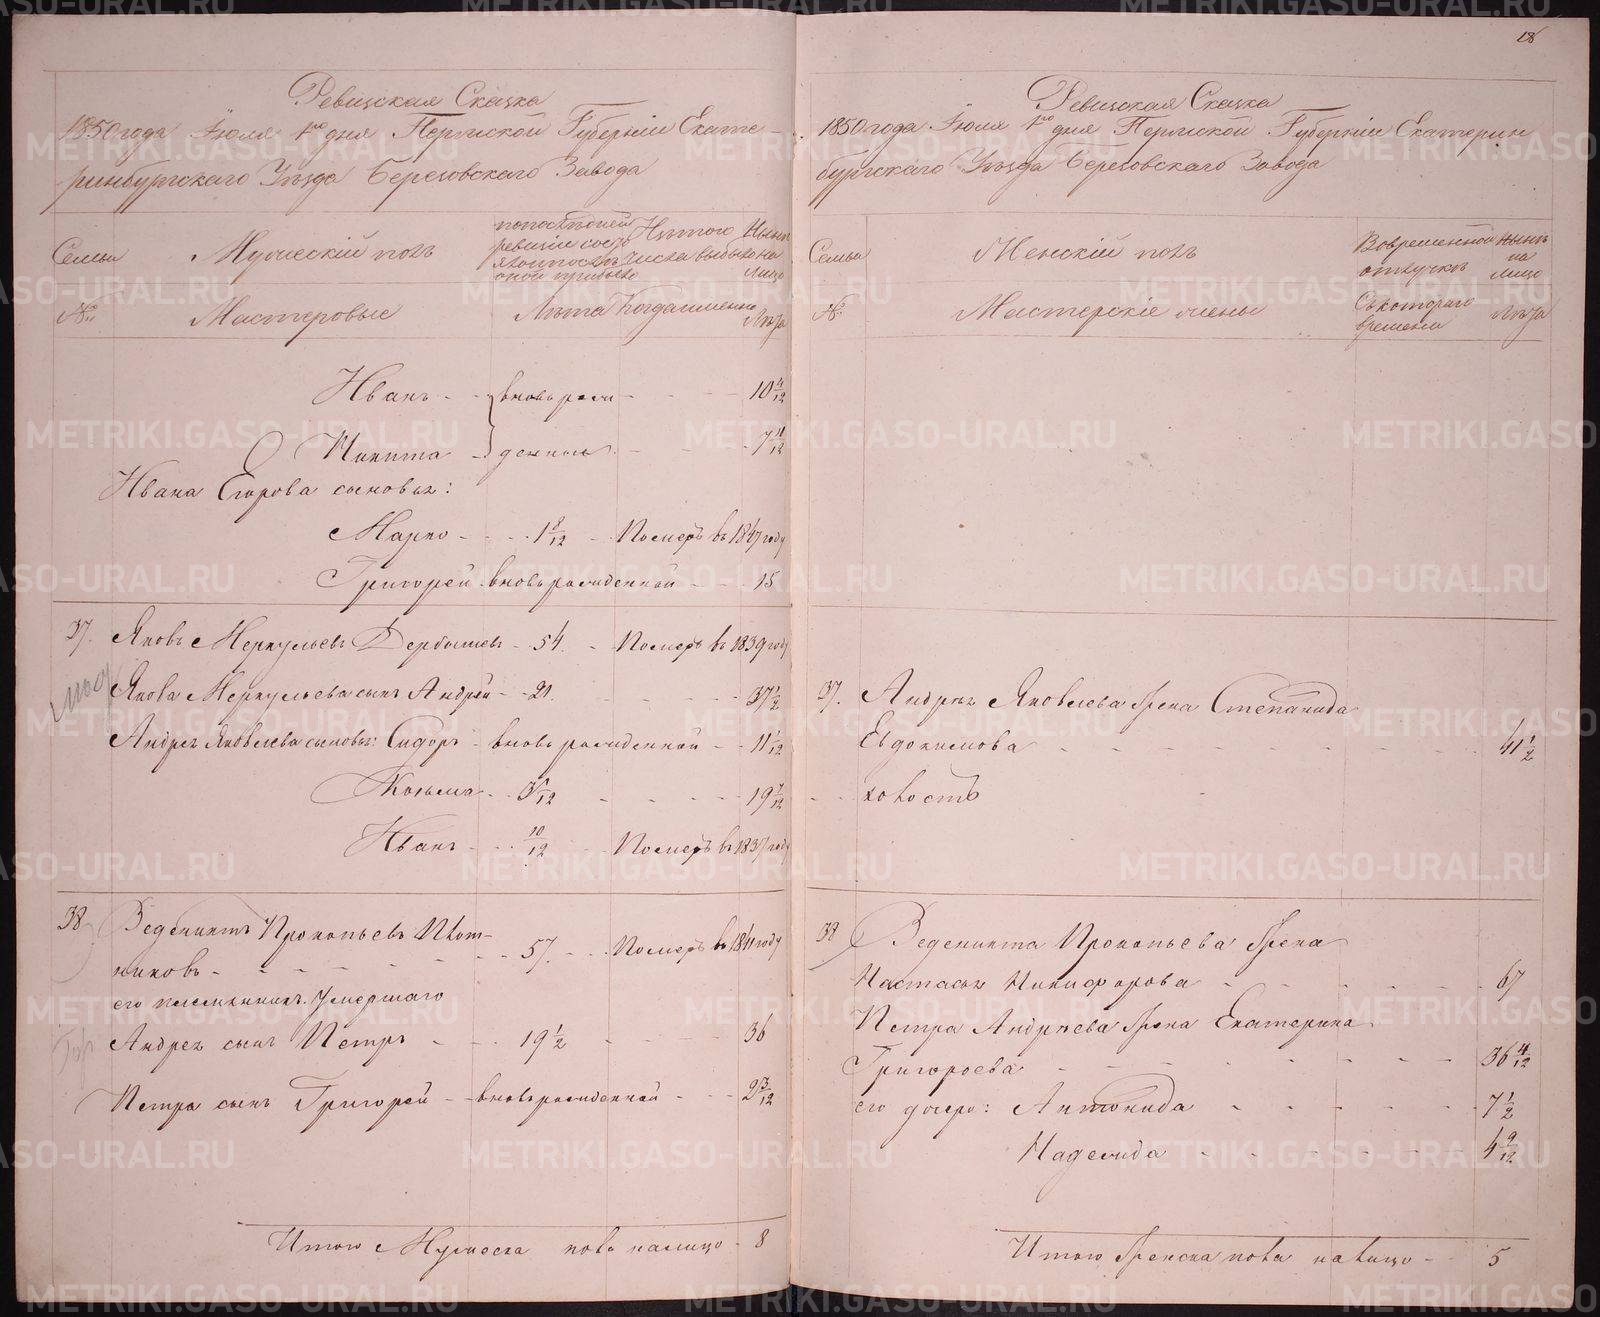 Ревизская Сказка
1850 года Іюля 1го дня Пермской Губерніи Екате-
ринбургскаго Уѣзда Березовскаго Завода
Семьи
Мужескій полъ
по последней ревизіи состояло и послѣ оной прибыло
Изъ того числа выбыло
Нынѣ на лицо
№
Мастеровые
Лѣта
Когда именно
Лѣта
Иванъ - - вновь рож- - - 10 4/12
Никита - денные - - 7 11/12
Ивана Егорова сыновья:
Марко - - 1 8/12 - Померъ въ 1847 году
Григорей вновь рожденной - - 15
37. Яковъ Меркульевъ Дербышевъ - 54. - Померъ въ 1839 году
Якова Меркульева сынъ Андрей - - 21. 37 1/2
Андрея Яковлева сыновья: Сидоръ - вновь рожденной - - 11 1/12
Козьма - - 3/12 - - - 19 7/12
Иванъ - - 10/12 Померъ въ 1837 году
38 Ведениктъ Прокопьевъ Плот-
никовъ - - - - - 57. - - Померъ въ 1841 году
его племянникъ. Умершаго
Андрея сынъ Петръ - - 19 1/2 36
Петра сынъ Григорей - - вновь рожденной - - - 2 3/12
Итого Мужеска пола налицо - 8
18
Ревизская Сказка
1850 года Іюля 1го дня Пермской Губерніи Екатерин
бургскаго Уѣзда Березовскаго Завода
Семьи
Женскій полъ
Во временной отлучкѣ
Нынѣ на лицо
№
Мастерскіе жены
Съ котораго времени
Лѣта
37. Андрея Яковлева жена Степанида
Евдокимова - - - - - 41 1/2
холостъ
38 Веденикта Прокопьева жена
Настасья Никифорова - - - - 67
Петра Андрѣева жена Екатерина
Григорьева - - - - - 36 4/12
его дочери: Антонида - - - - 7 1/2
Надежида - - - - 4 9/12
Итого женска пола налицо - - 5
METRIKI.GASO-URAL.RU